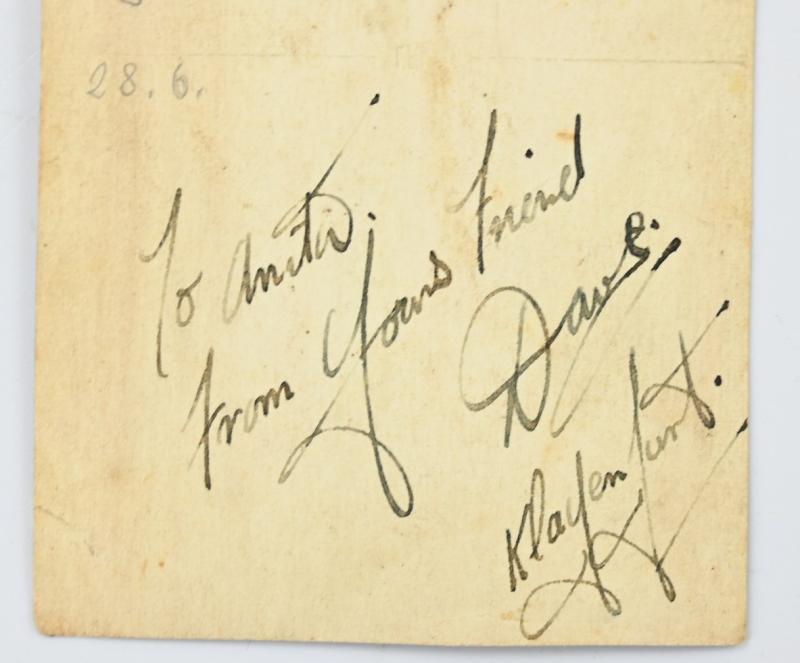 28.6.
To Anita.
From Yours Friend
Dave.
Klagenfurt.